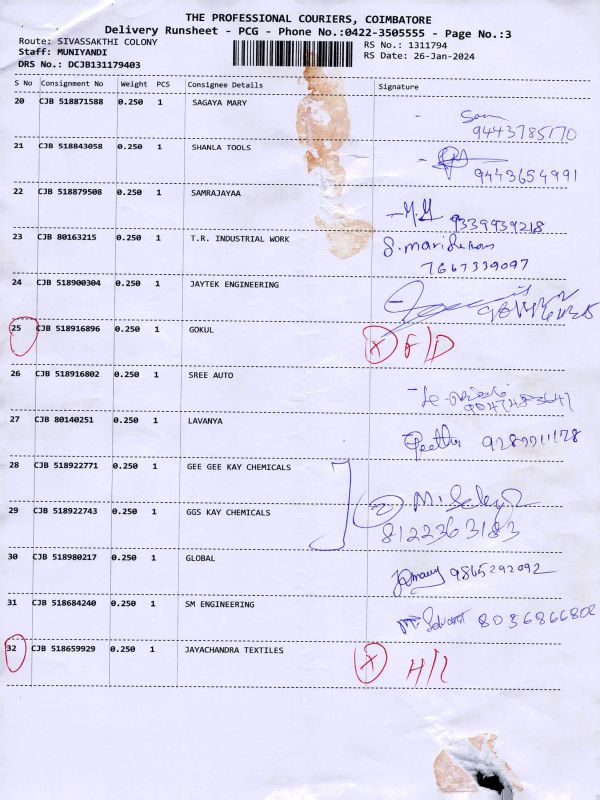 THE PROFESSIONAL COURIERS, COIMBATORE
Delivery Runsheet - PCG - Phone No.:0422-3505555 - Page No.:3
Route: SIVASSAKTHI COLONY
Staff: MUNIYANDI
DRS No.: DCJB131179403
RS No.: 1311794
RS Date: 26-Jan-2024
S No Consignment No Weight PCS Consignee Details Signature
20 CJB 518871588 0.250 1 SAGAYA MARY
9443785170
21 CJB 518843058 0.250 1 SHANLA TOOLS
9443654991
22 CJB 518879508 0.250 1 SAMRAJAYAA
M.G 9339939218
23 CJB 80163215 0.250 1 T.R. INDUSTRIAL WORK
7667339097
24 CJB 518900304 0.250 1 JAYTEK ENGINEERING
25 CJB 518916896 0.250 1 GOKUL X F/D
26 CJB 518916802 0.250 1 SREE AUTO
27 CJB 80140251 0.250 1 LAVANYA
Geetha
28 CJB 518922771 0.250 1 GEE GEE KAY CHEMICALS
29 CJB 518922743 0.250 1 GGS KAY CHEMICALS
2
8122363183
30 CJB 518980217 0.250 1 GLOBAL
9865292092
31 CJB 518684240 0.250 1 SM ENGINEERING
32 CJB 518659929 0.250 1 JAYACHANDRA TEXTILES X